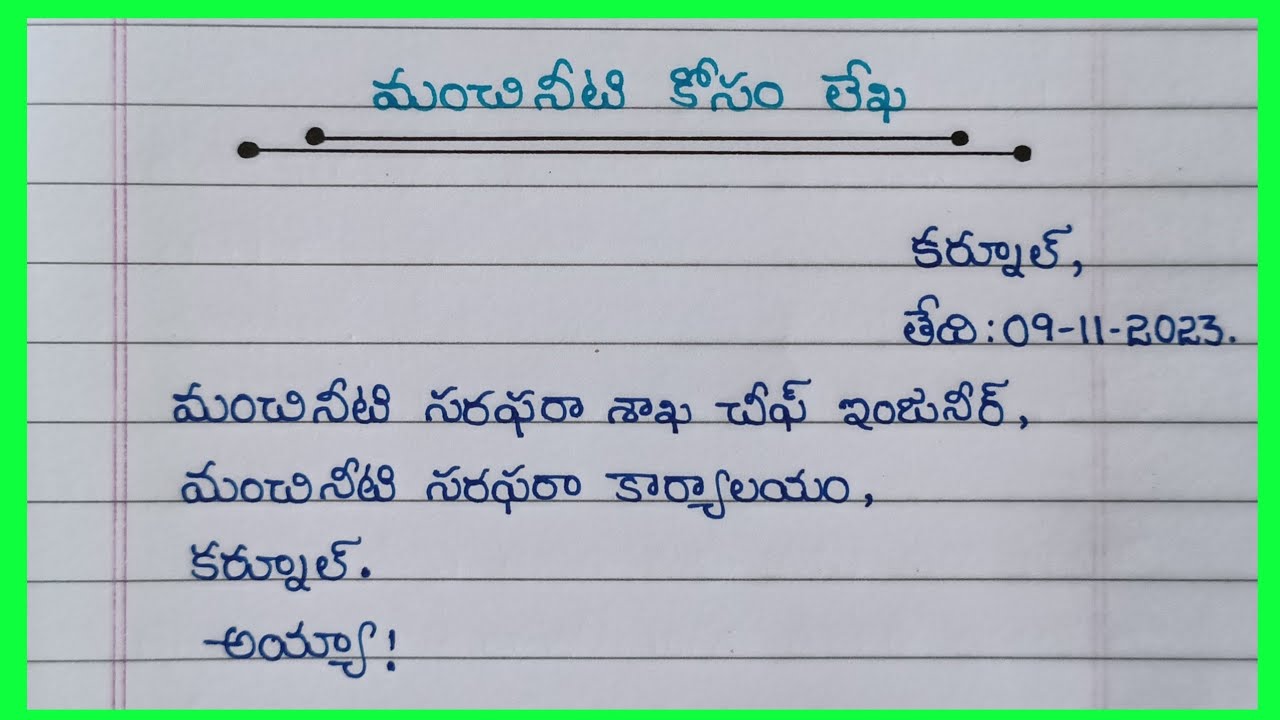 మంచినీటి కోసం లేఖ
కర్నూల్,
తేది:09-11-2023.
మంచినీటి సరఫరా శాఖ చీఫ్ ఇంజనీర్,
మంచినీటి సరఫరా కార్యాలయం,
కర్నూల్.
అయ్యా!